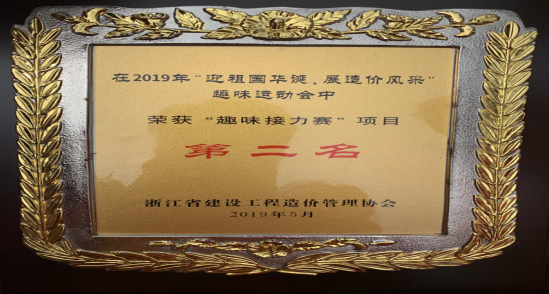 在2019年“迎祖国华诞，展造价风采”
趣味运动会中
荣获“趣味接力赛”项目
第二名
浙江省建设工程造价管理协会
2019年5月